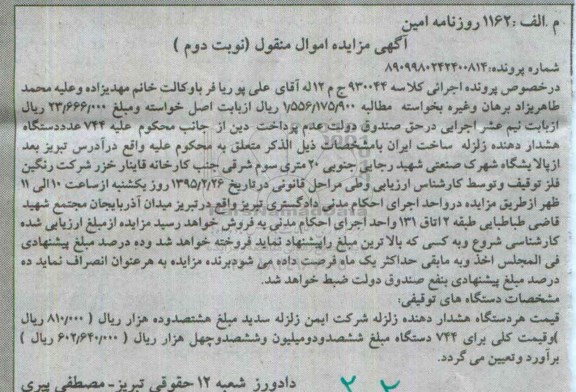 م.الف :۱۱۶۲ روزنامه امین
آگهی مزایده اموال منقول (نوبت دوم )
شماره پرونده:۸۹۰۹۹۸۰۲۴۲۴۰۰۸۱۴
درخصوص پرونده اجرائی کلاسه ۹۳۰۰۴۴ ج م ۱۲له آقای علی پوریا فر باوکالت خانم مهدیزاده وعلیه محمد
طاهرنژاد برهان وغیره بخواسته مطالبه ۱/۵۵۶/۱۷۵/۹۰۰ ریال ازبابت اصل خواسته ومبلغ ۲۳/۶۶۶/۰۰۰ ریال
ازبابت نیم عشر اجرایی درحق صندوق دولت عدم پرداخت دین از جانب محکوم علیه ۷۴۴ عدددستگاه
هشدار دهنده زلزله ساخت ایران بامشخصات ذیل الذکر متعلق به محکوم علیه واقع درآدرس تبریز بعد
ازپالایشگاه شهرک صنعتی شهید رجایی جنوبی ۲۰ متری سوم شرقی جنب کارخانه قاینار خزر شرکت رنگین
فلز توقیف وتوسط کارشناس ارزیابی وطی مراحل قانونی درتاریخ ۱۳۹۵/۲/۲۶ روز یکشنبه ازساعت ۱۰ الی ۱۱
ظهر ازطریق مزایده درواحد اجرای احکام مدنی دادگستری تبریز واقع درتبریز میدان آذربایجان مجتمع شهید
قاضی طباطبایی طبقه ۲ اتاق ۱۳۱ واحد اجرای احکام مدنی به فروش خواهد رسید مزایده ازمبلغ ارزیابی شده
کارشناسی شروع وبه کسی که بالا ترین مبلغ راپیشنهاد نماید فروخته خواهد شد وده درصد مبلغ پیشنهادی
فی المجلس اخذ وبه مابقی حداکثر یک ماه فرصت داده می شودبرنده مزایده به هرعنوان انصراف نماید ده
درصد مبلغ پیشنهادی بنفع صندوق دولت ضبط خواهد شد.
مشخصات دستگاه های توقیفی:
قیمت هردستگاه هشدار دهنده زلزله شرکت ایمن زلزله سدید مبلغ هشتصدوده هزار ریال ( ۸۱۰/۰۰۰ ریال
)وقیمت کلی برای ۷۴۴ دستگاه مبلغ ششصدودومیلیون وششصدوچهل هزار ریال ( ۶۰۲/۶۴۰/۰۰۰ ریال )
برآورد وتعیین می گردد.
دادورز شعبه ۱۲ حقوقی تبریز- مصطفی پیری